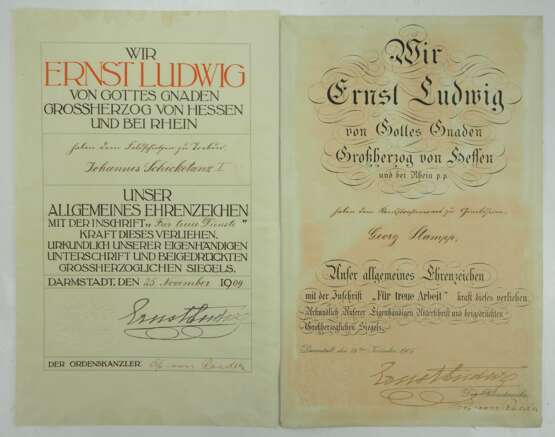 WIR
ERNST LUDWIG
VON GOTTES GNADEN
GROSSHERZOG VON HESSEN
UND BEI RHEIN
haben dem Feldschützen zu
Johannes Schickedanz I
UNSER
ALLGEMEINES EHRENZEICHEN
MIT DER INSCHRIFT „Für treue Dienste"
KRAFT DIESES VERLIEHEN.
URKUNDLICH UNSERER EIGENHÄNDIGEN
UNTERSCHRIFT UND BEIGEDRÜCKTEN
GROSSHERZOGLICHEN SIEGELS.
DARMSTADT, DEN 25. November 1909
Ernst Ludwig
DER ORDENSKANZLER
Wir
Ernst Ludwig
von Gottes Gnaden
Großherzog von Hessen
und bei Rhein p.p.
haben dem zu
Georg Stampp,
Unser allgemeines Ehrenzeichen
mit der Inschrift „Für treue Arbeit" kraft dieses verliehen.
Urkundlich Unserer Eigenhändigen Unterschrift und beigedrückten
Großherzoglichen Siegels.
Darmstadt den
Ernst Ludwig